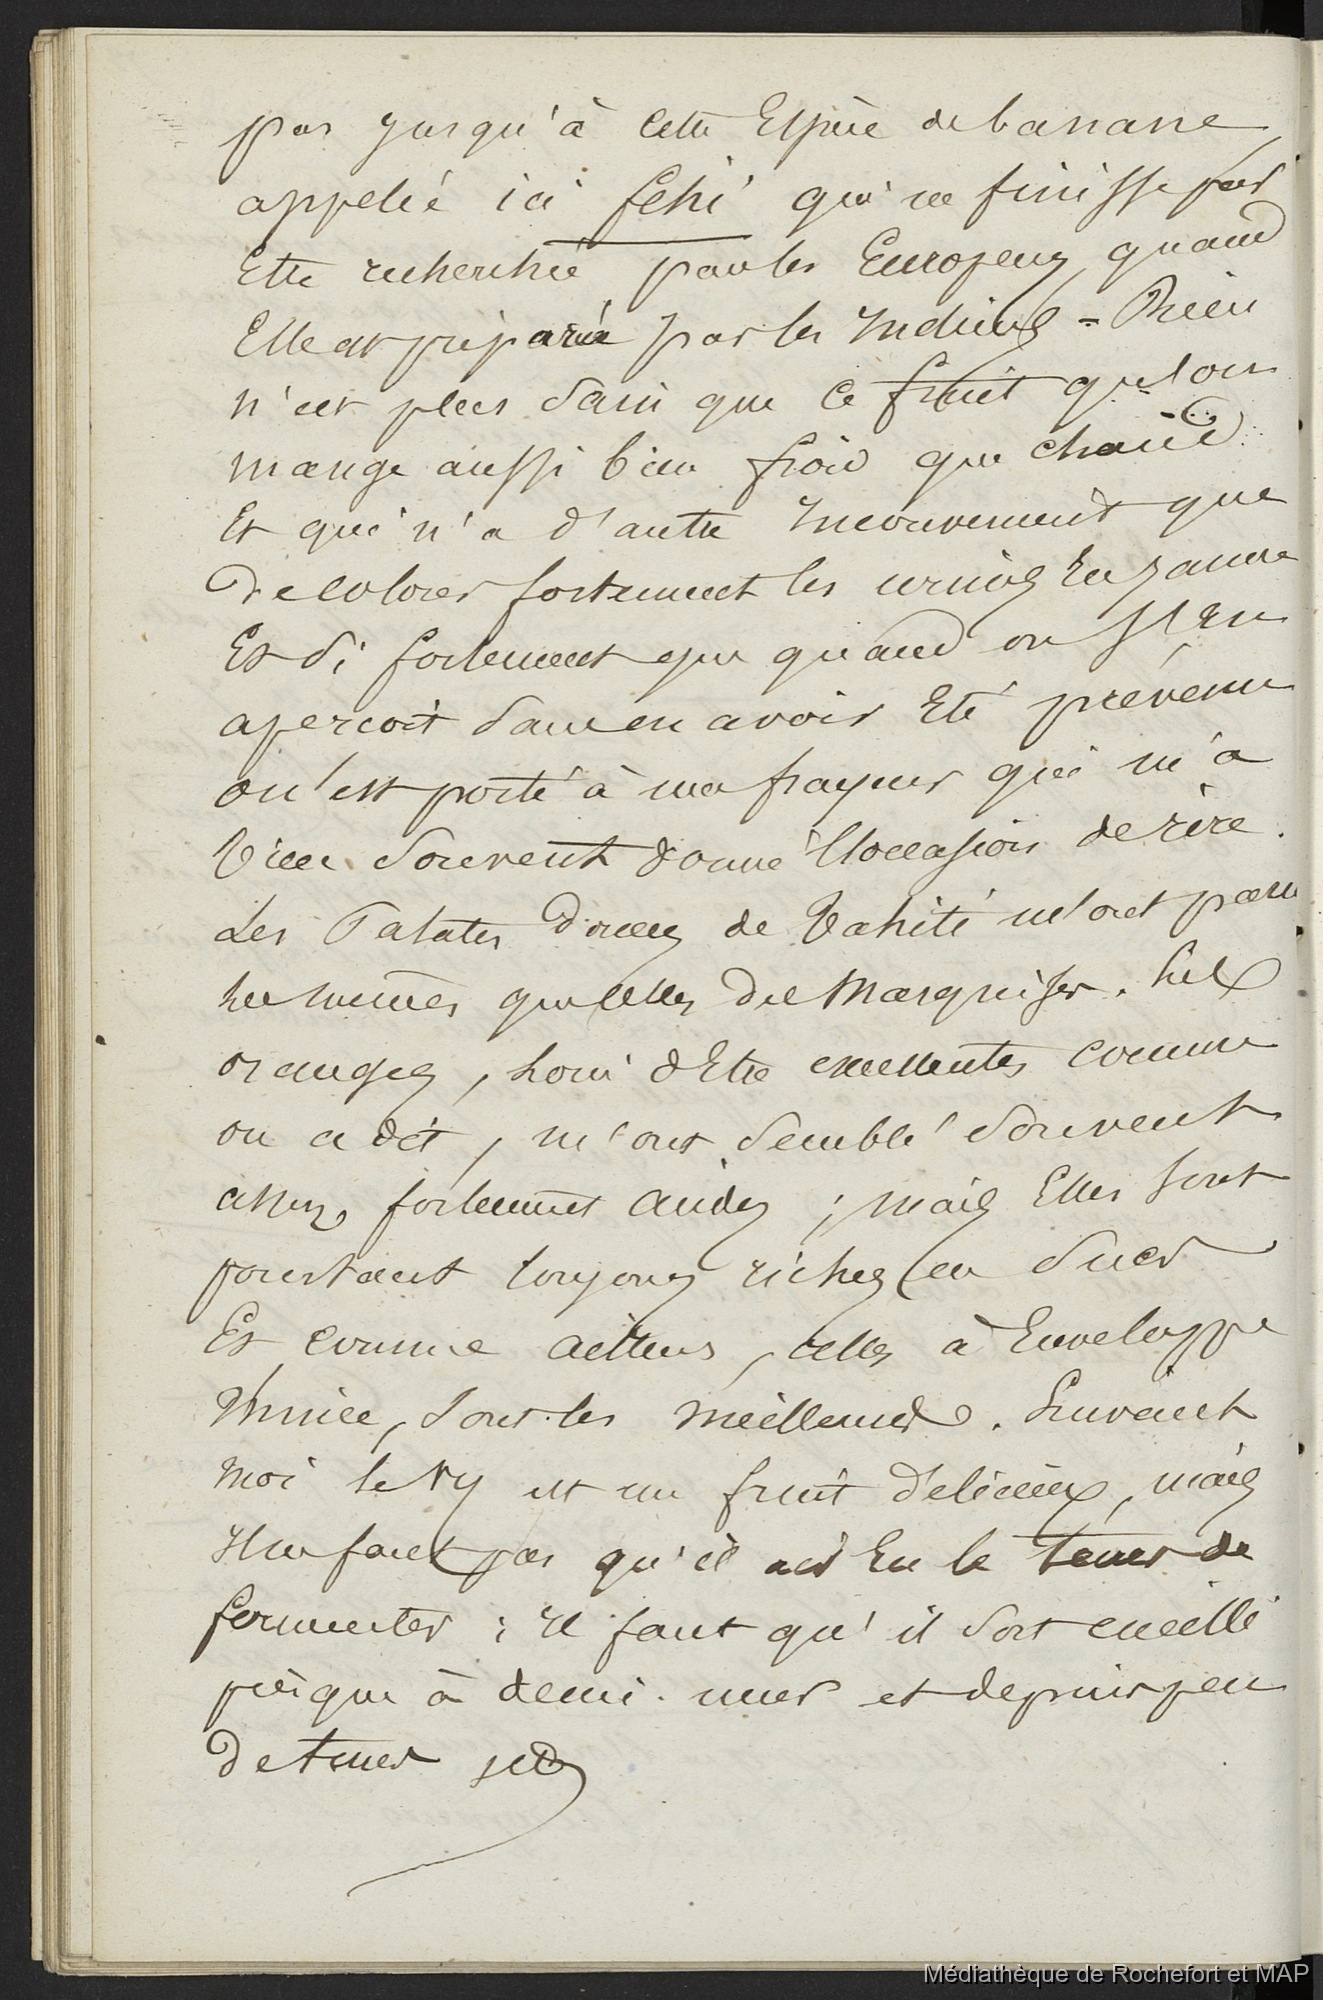 pas jusqu'à cette Espèce de banane
appelée ici fehi qui ne finisse par
Etre recherchée par les Européens quand
Elle est préparée par les Indiens = Rien
n'est plus sain que ce fruit que l'on
mange aussi bien froid que chaud
Et qui n'a d'autre Inconvenient que
de colorer fortement les urines En jaune
Et si fortement que quand on s'en
apercoit sans en avoir Eté prévenu
on est porté à une frayeur qui m'a
bien souvent donné l'occasion de rire.
Les Patates douces de Tahiti m'ont paru
les mêmes que celles des Marquises. Les
oranges, loin d'Etre excellentes comme
on a dit, m'ont semblé souvent
assez fortement acides ; mais Elles sont
pourtant toujours riches en sucs
Et comme ailleurs, celles à Enveloppe
mince, sont les meilleures. Suivant
moi le Vy est un fruit délicieux, mais
Il ne faut pas qu'il ait Eu le tems de
fermenter ; Il faut qu'il soit cueilli
presque à demi-mur et depuis peu
de tems
Médiathèque de Rochefort et MAP